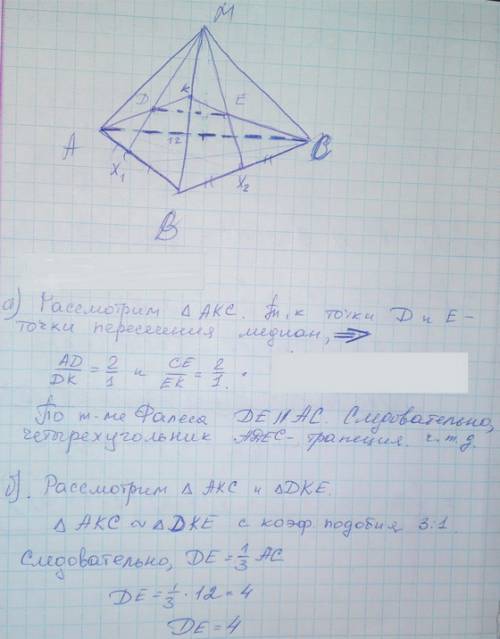 M
D K E
12
A C
X₁ X₂
B
а) Рассмотрим △ AKC. Т.к точки D и E –
точки пересечения медиан, ⟹
AD/DK = 2/1 и CE/EK = 2/1.
По т-ме Фалеса DE ∥ AC. Следовательно,
четырехугольник ADEC – трапеция. ч.т.д.
б). Рассмотрим △ AKC и △DKE.
△ AKC ~ △DKE с коэф. подобия 3:1.
Следовательно, DE = 1/3 AC
DE = 1/3 · 12 = 4
DE = 4